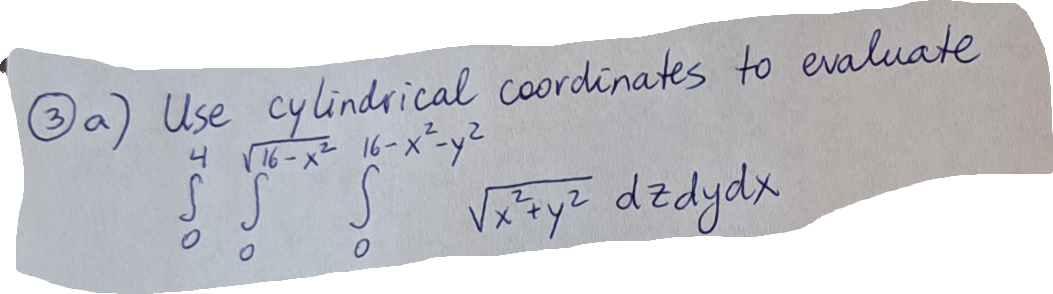 ③a) Use cylindrical coordinates to evaluate
∫₀⁴ ∫₀^√(16-x²) ∫₀^(16-x²-y²) √(x²+y²) dzdydx